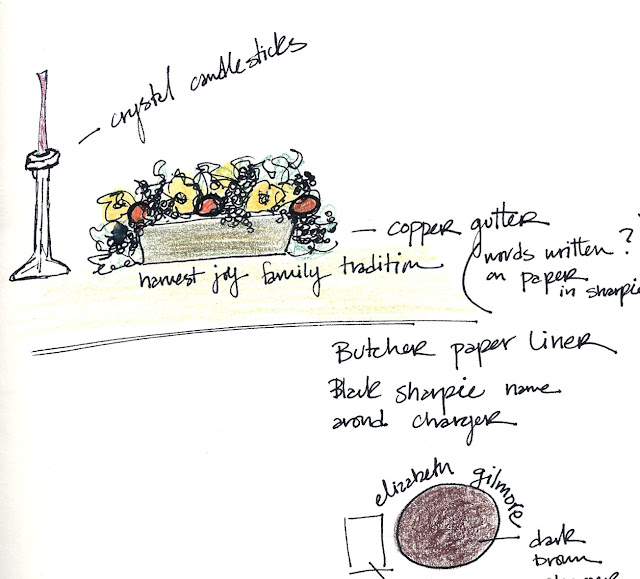 crystal candlesticks
copper gutter
words written ?
on paper
in sharpie
harvest joy family tradition
Butcher paper liner
Black sharpie name
arond charger
elizabeth gilmore
dark
brown